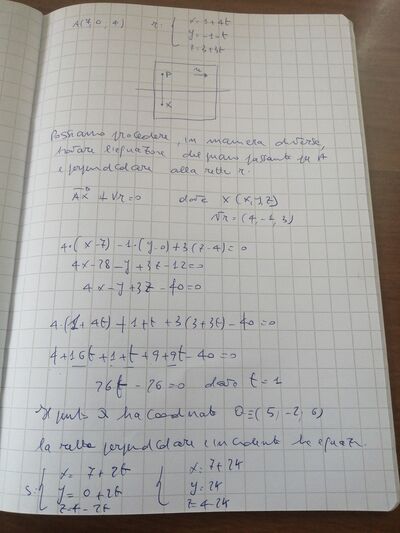 A(7, 0, 4) r: { x = 1+4t
y = -1-t
z = 3+3t
P u
X
Possiamo procedere, in maniera diversa,
trovare l'equazione del piano passante per A
e perpendicolare alla retta r.
AX · Vr = 0 dove X (x, y, z)
Vr = (4, -1, 3)
4·(x-7) -1·(y-0) +3(z-4) = 0
4x-28-y+3z-12=0
4x-y+3z-40=0
4·(1+4t) +1+t +3(3+3t) -40=0
4+16t+1+t+9+9t-40=0
26t-26=0 t=1
Il punto ha coordinate (5, -2, 6)
la retta perpendicolare e incidente ha equaz.
S: { x = 7+2t { x = 7+2k
y = 0+2t y = 2k
z = 4-2t z = 4-2k